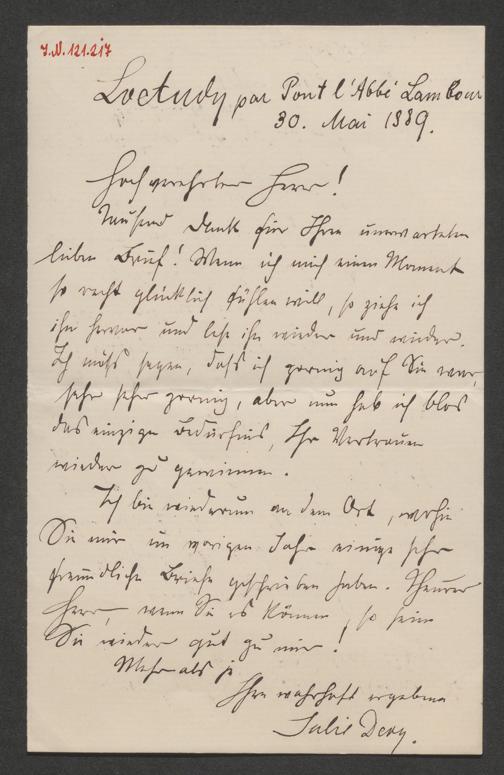 J.N. 121.217
Loctudy par Pont l'Abbé Lambour
30. Mai 1889.
Hochverehrter Herr!
Tausend Dank für Ihren unerwarteten
lieben Brief! Wenn ich mich einen Moment
so recht glücklich fühlen will, so ziehe ich
ihn hervor und lese ihn wieder und wieder.
Ich muß sagen, daß ich zornig auf Sie war,
sehr sehr zornig, aber nun hab ich blos
das einzige Bedürfnis, Ihr Vertrauen
wieder zu gewinnen.
Ich bin wiederum an dem Ort, wohin
Sie mir im vorigen Jahr einige sehr
freundliche Briefe geschrieben haben. Theurer
Herr, wenn Sie es können, so seien
Sie wieder gut zu mir!
Mehr als je
Ihre wahrhaft ergebene
Julie